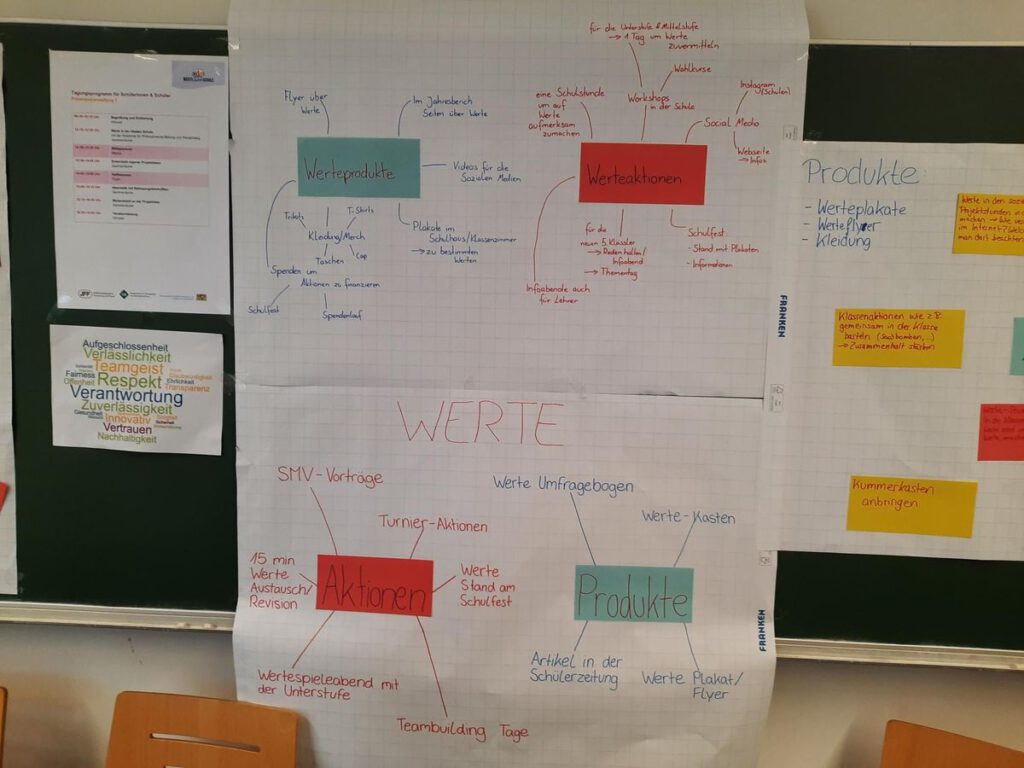 Tagungsprogramm für Schülerinnen & Schüler
Aufgeschlossenheit
Verlässlichkeit
Teamgeist
Fairness
Respekt
Offenheit
Ehrlichkeit
Transparenz
Verantwortung
Zuverlässigkeit
Gesundheit
Innovativ
Sicherheit
Vertrauen
Nachhaltigkeit
Werteprodukte
Flyer über
Werte
Im Jahresbericht
Seiten über Werte
Videos für die
Sozialen Medien
Plakate im
Schulhaus/Klassenzimmer
→ zu bestimmten
Werten
Trikots
T-Shirts
Kleidung/Merch
Taschen
Cap
Spenden um
Aktionen zu finanzieren
Schulfest
Spendenlauf
Werteaktionen
für die Unterstufe & Mittelstufe
→ 1 Tag um Werte
zuvermitteln
Wahlkurse
Workshops
in der Schule
eine Schulstunde
um auf
Werte
aufmerksam
zumachen
Instagram
(Schulen)
Social Media
Webseite
→ Infos
Schulfest
- Stand mit Plakaten
- Informationen
für die
neuen 5.Klässler
→ Reden halten/
Infoabend
→ Thementag
Infoabende auch
für Lehrer
FRANKEN
WERTE
Aktionen
SMV-Vorträge
Turnier-Aktionen
15 min
Werte
Austausch/
Revision
Werte
Stand am
Schulfest
Wertespieleabend mit
der Unterstufe
Teambuilding Tage
Produkte
Werte Umfragebogen
Werte-Kasten
Artikel in der
Schülerzeitung
Werte Plakat/
Flyer
FRANKEN
Produkte:
- Werteplakate
- Werteflyer
- Kleidung
Werte in den
Projektstunden in
machen →
im Internet?
man dort
Klassenaktionen wie z.B.
gemeinsam in der Klasse
basteln (Saatbomben,...)
→ Zusammenhalt stärken
Kummerkasten
anbringen